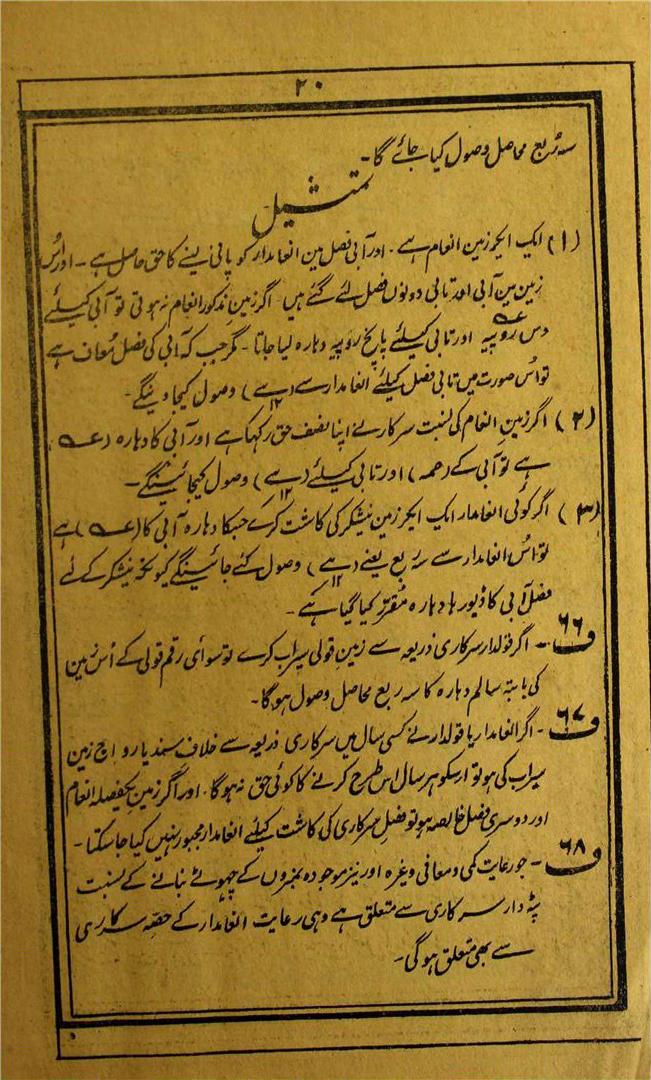 ۲۰
سہ ربع محاصل وصول کیا جائے گا۔
تمثیل
(۱) ایک ایکر زمین انعام ہے ۔ اور آبی فصل مین انعامدار کو پانی لینے کا حق حاصل ہے ۔ اور اُس
زمین مین آبی اور تابی دونوں فصل لئے گئے ہیں اگر زمین مذکور انعام نہ ہوتی تو آبی کیلئے
دس روپیہ اور تابی کیلئے پانچ روپیہ دہارہ لیا جاتا ۔ مگر جب کہ آبی کی فصل مُعاف ہے
تو اُس صورت میں تابی فصل کیلئے انعامدار سے ( ) وصول کیجاوینگے ۔
(۲) اگر زمین انعام کی نسبت سرکار نے اپنا نصف حق رکہا ہے اور آبی کا دہارہ (
ہے تو آبی کے ( ) اور تابی کیلئے ( ) وصول کیجائینگے ۔
(۳) اگر کوئی انعامدار ایک ایکر زمین نیشکر کی کاشت کرے جسکا دہارہ آبی کا ( ) ہے
تو اُس انعامدار سے سہ ربع یعنے ( ) وصول کئے جائینگے کیونکہ نیشکر کے لئے
فصل آبی کا ڈیوڑہا دہارہ مُقرر کیا گیا ہے ۔
ف ۶۶ ۔ اگر قولدار سرکاری ذریعہ سے زمین قولی سیراب کرے تو سوائی رقم قولی کے اُس زمین
کی بابتہ سالم دہارہ کا سہ ربع محاصل وصول ہوگا ۔
ف ۶۷ ۔ اگر انعامدار یا قولدار نے کسی سال میں سرکاری ذریعہ سے خلاف سند یا رواج زمین
سیراب کی ہو تو اوسکو ہر سال اس طرح کرنے کا کوئی حق نہ ہوگا ۔ اور اگر زمین یکفصلہ انعام
اور دوسری فصل خالصہ ہو تو فصل سرکاری کی کاشت کیلئے انعامدار مجبور نہیں کیا جاسکتا ۔
ف ۶۸ ۔ جو رعایت کمی و معافی وغیرہ اور نیز موجودہ نمبروں کے چھوٹے بنانے کے نسبت
پٹہ دار سرکاری سے متعلق ہے وہی رعایت انعامدار کے حصّہ سرکاری
سے بھی متعلق ہوگی ۔